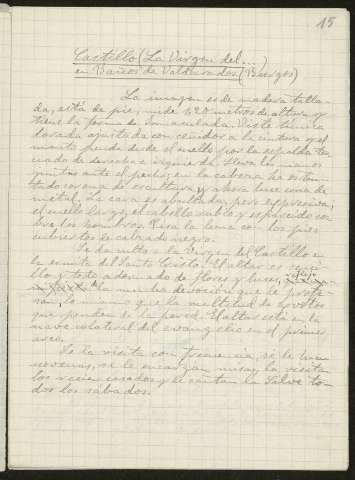 15
Castillo (La Virgen del ...)
en Baños de Valdearados (Burgos)
La imagen es de madera talla-
da, está de pie, mide 1,20 metros de altura y
tiene la forma de Inmaculada. Viste túnica
dorada ajustada con ceñidor a la cintura y el
manto pende desde el cuello por la espalda ter-
ciado de derecha a izquierda. Lleva las manos
juntas ante el pecho; en la cabeza ha osten-
tado corona de escultura y ahora luce corona de
metal. La cara es abultada pero expresiva,
el cuello largo, el cabello suelto y esparcido so-
bre los hombros. Pisa la luna con los pies
cubiertos de calzado negro.
Se da culto a la Virgen del Castillo en
la ermita del Santo Cristo. El altar es
y todo adornado de flores y luces,
la mucha devoción que le profe-
san, lo mismo que la multitud de exvotos
que penden de la pared. El altar está en la
nave colateral del evangelio en el primer
arco.
Se la visita con frecuencia, se le hacen
novenas, se le encargan misas, la visitan
los recien casados y le cantan la Salve to-
dos los sábados.